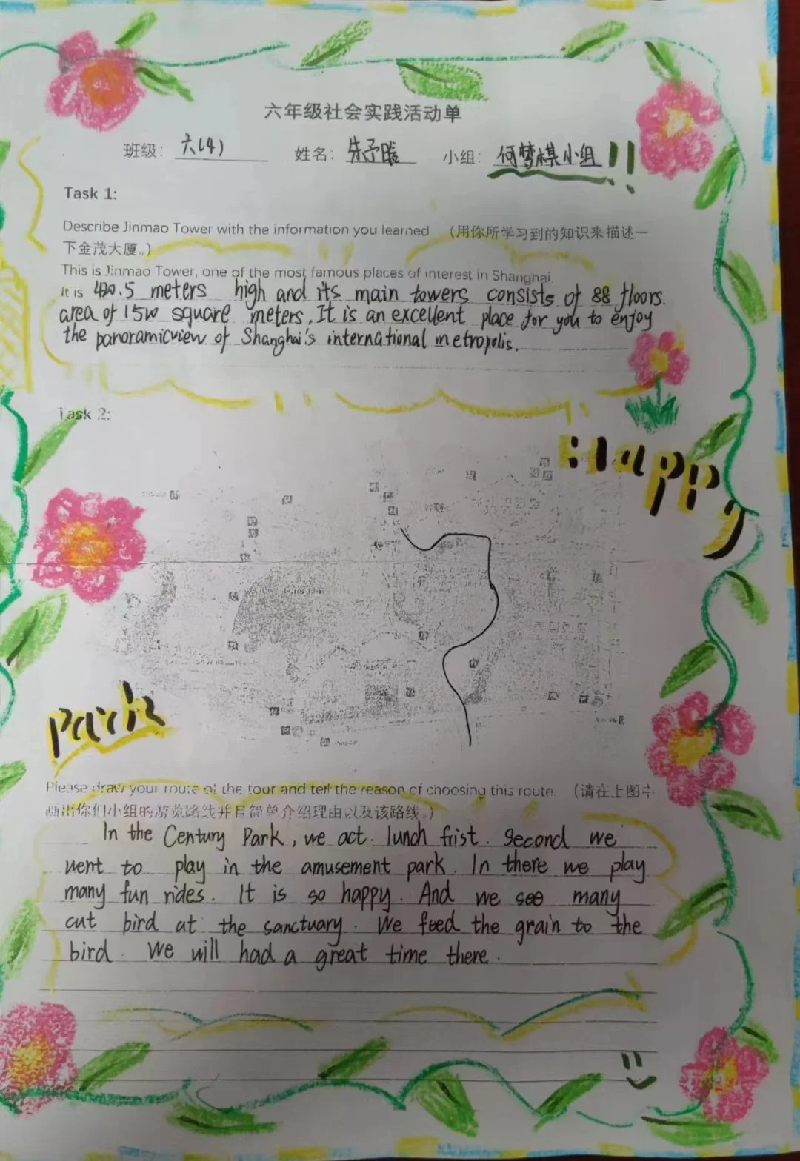 六年级社会实践活动单
班级: 六(4) 姓名: 朱予暄 小组: 何梦棋小组!!
Task 1:
Describe Jinmao Tower with the information you learned (用你所学习到的知识来描述一
下金茂大厦。)
This is Jinmao Tower, one of the most famous places of interest in Shanghai.
It is 420.5 meters high and its main towers consists of 88 floors.
area of 1500 square meters. It is an excellent place for you to enjoy
the panoramicview of Shanghai's international metropolis.
Task 2:
Happy
park
Please draw your route of the tour and tell the reason of choosing this route. (请在上图中
画出你们小组的游览路线并且简单介绍理由以及该路线。)
In the Century Park, we act lunch frist. Second we
went to play in the amusement park. In there we play
many fun rides. It is so happy. And we see many
cut bird at the sanctuary. We feed the grain to the
bird. We will had a great time there.